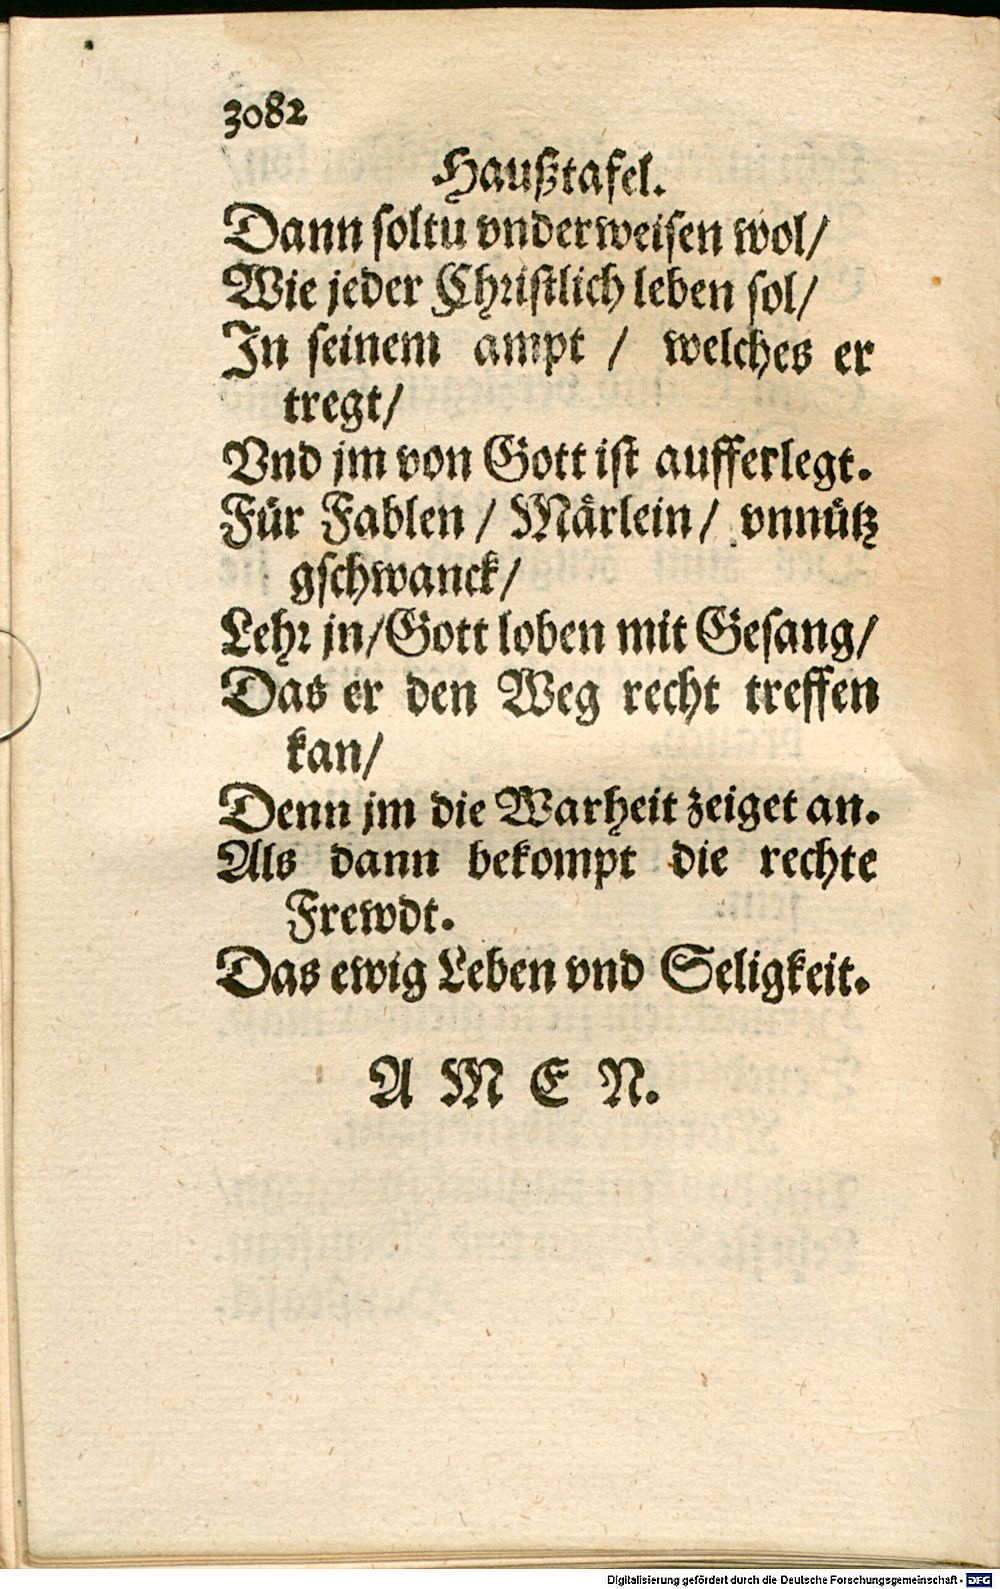 3082
Haußtafel.
Dann soltu vnderweisen wol/
Wie jeder Christlich leben sol/
In seinem ampt / welches er
tregt/
Vnd jm von Gott ist aufferlegt.
Für Fablen / Märlein / vnnütz
gschwanck/
Lehr jn/Gott loben mit Gesang/
Das er den Weg recht treffen
kan/
Denn jm die Warheit zeiget an.
Als dann bekompt die rechte
Frewdt.
Das ewig Leben vnd Seligkeit.
A M E N.
Digitalisierung gefördert durch die Deutsche Forschungsgemeinschaft - DFG